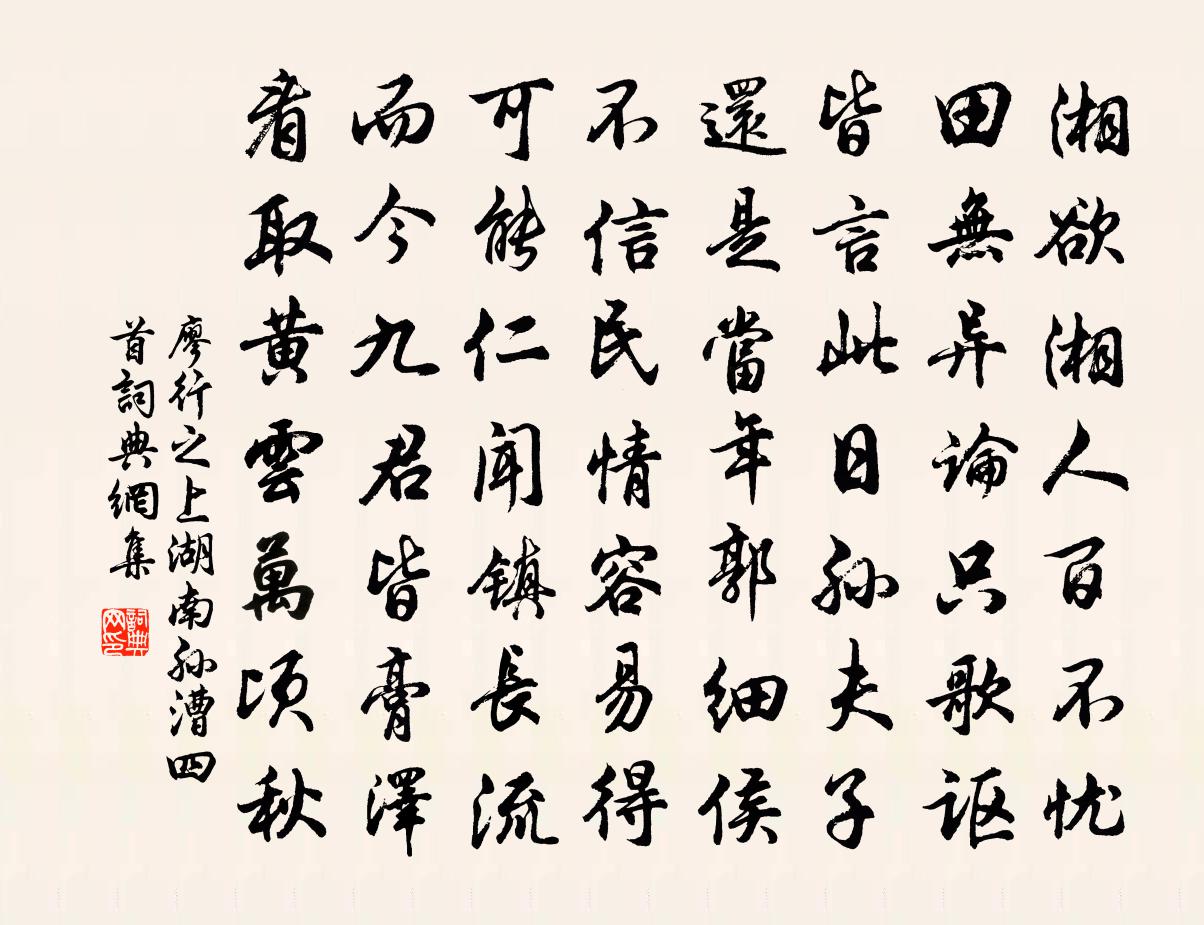 湘欲湘人百不忧
田無异論只歌讴
皆言此日孙夫子
還是當年郭細侯
不信民情容易得
可能仁聞鎮長流
而今九君皆膏澤
看取黃雲萬頃秋
廖行之上湖南孙漕四
首詞典網集
詞典网印